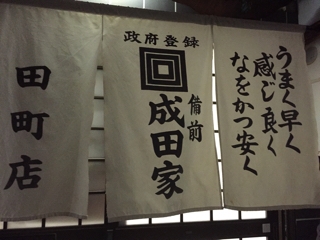 うまく早く
感じ良く
なをかつ安く
政府登録
備前
成田家
田町店